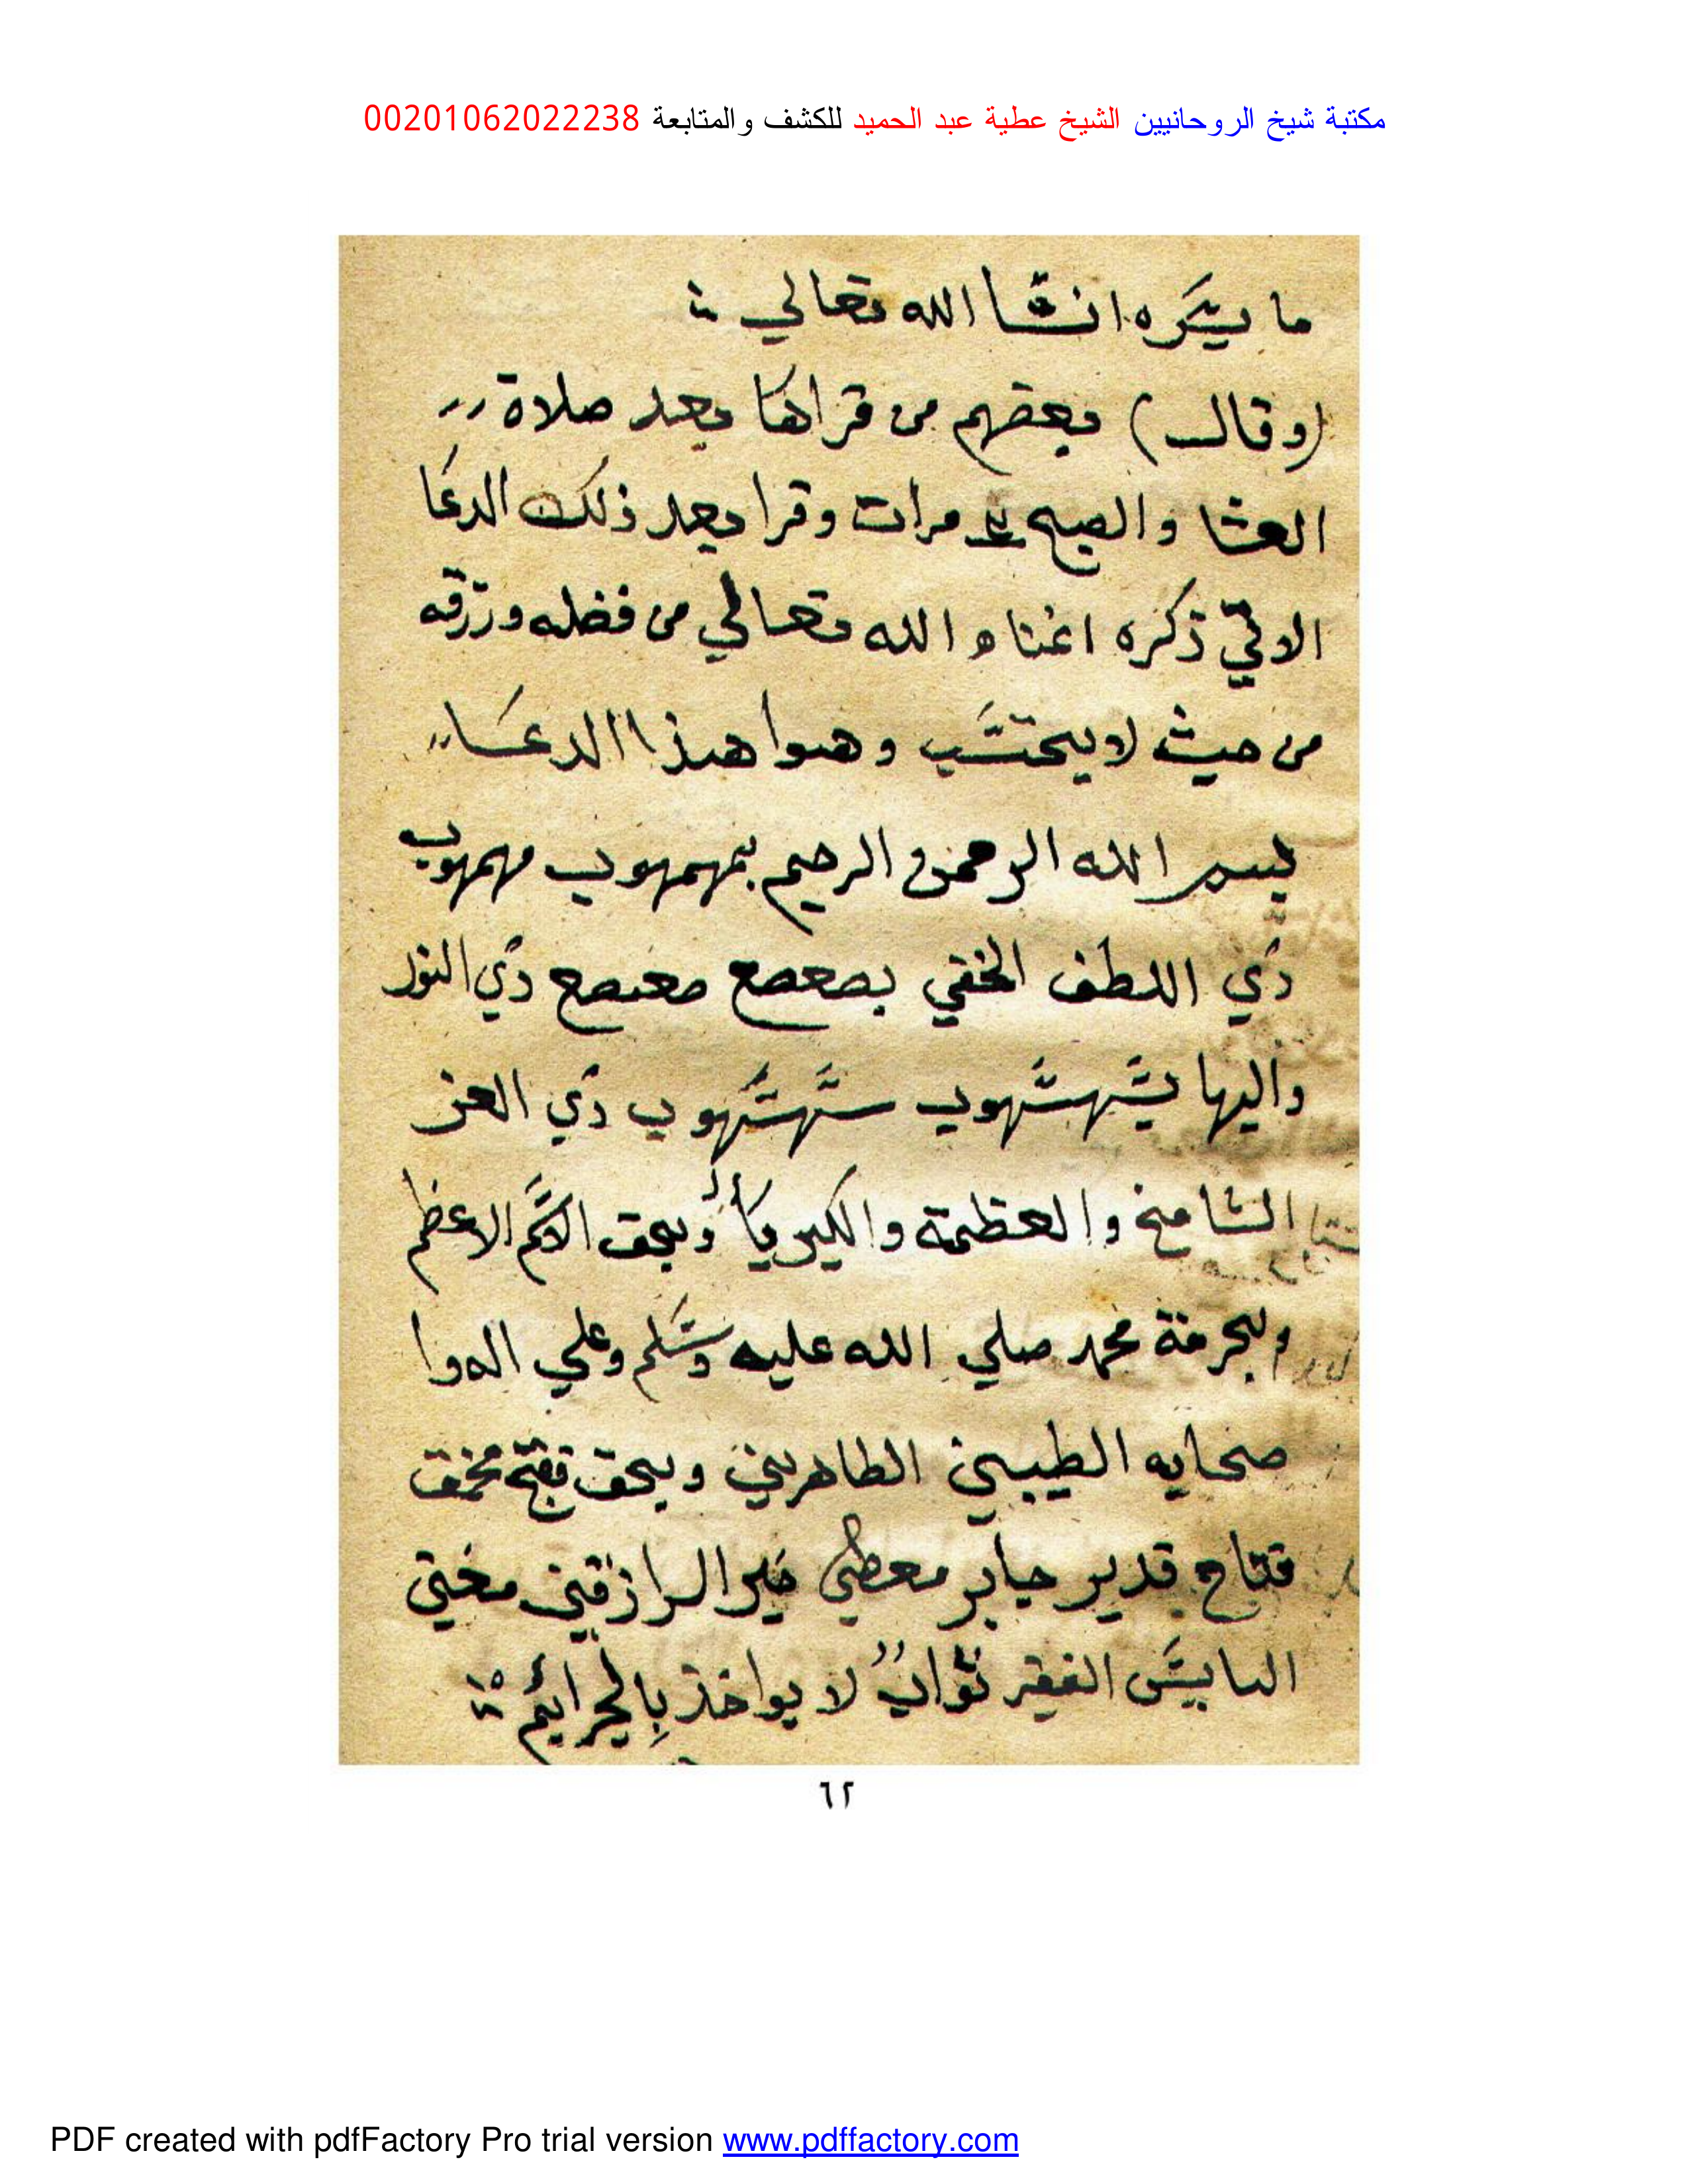 مكتبة شيخ الروحانيين الشيخ عطية عبد الحميد للكشف والمتابعة 00201062022238
ما يسره انشا الله تعالي
(وقال) بعضهم من قراها بعد صلاة
العشا والصبح مرات وقرا بعد ذلك الدعا
الاتي ذكره اغناه الله تعالي من فضله ورزقه
من حيث لا يحتسب وهوا هذا الدعا
بسم الله الرحمن الرحيم بمهمهوب مهمهوب
ذي اللطف الخفي بصعصع صعصع ذي النور
والبها بسهسهوب سهسهوب ذي العز
الشامخ والعظمة والكبرياء وبحق الاسم الاعظم
وبحرمة محمد صلي الله عليه وسلم وعلي اله وا
صحابه الطيبين الطاهرين وبحق مخمت
فتاح قدير جابر معطي خير الرازقين مغني
البايس الفقير تواب لا يواخذ بالجرائم
٦٢
PDF created with pdfFactory Pro trial version www.pdffactory.com